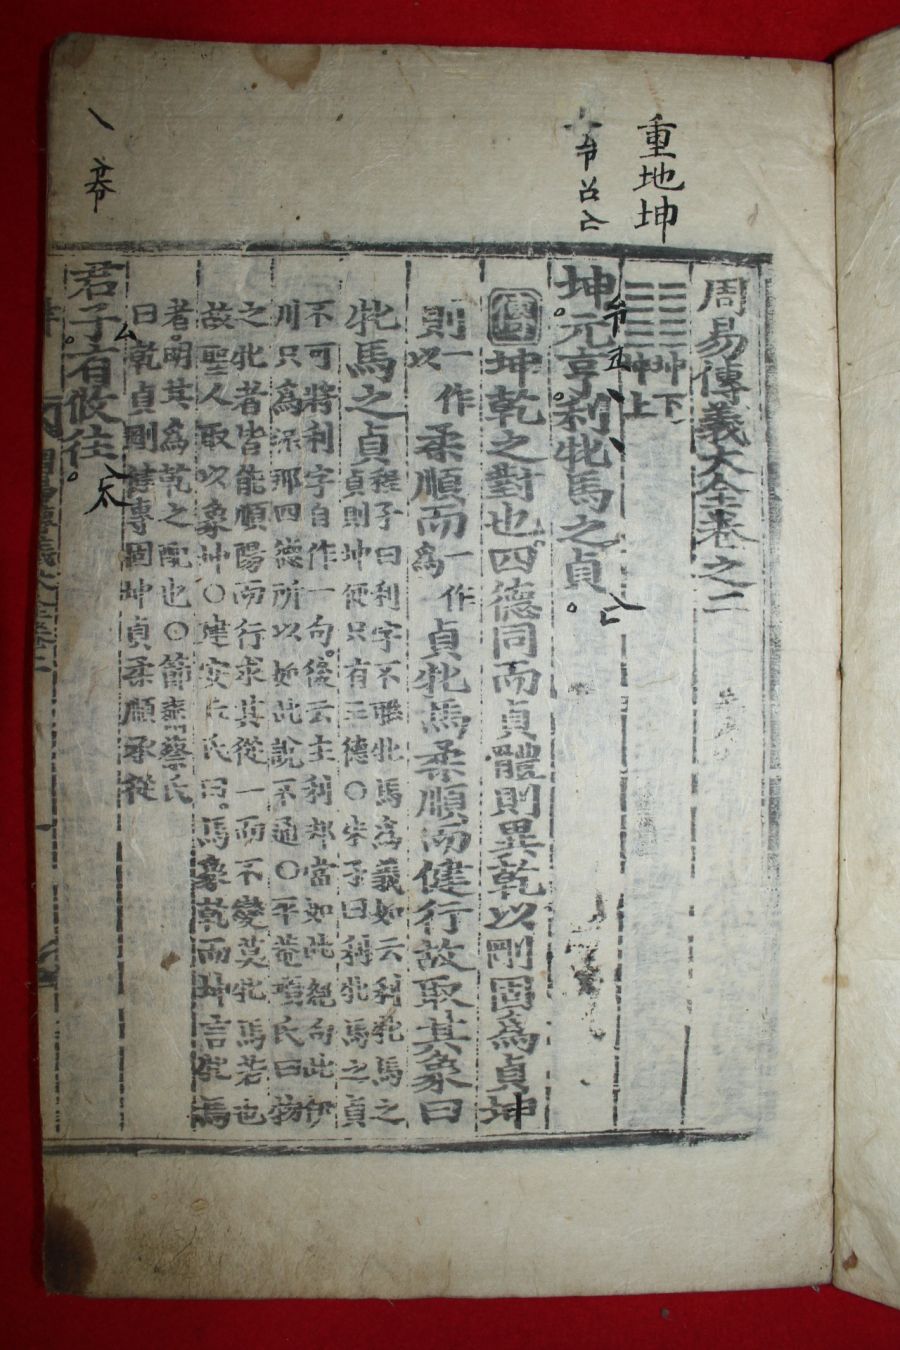 重地坤
周易傳義大全卷之二
坤下
坤上
坤元亨利牝馬之貞
傳坤乾之對也四德同而貞體則異乾以剛固爲貞坤
則一作以柔順而一作爲貞牝馬柔順而健行故取其象曰
牝馬之貞程子曰利字不聯牝馬爲義如云利牝馬之
貞則坤便只有三德○朱子曰利牝馬之貞
不可將利字自作一句後云主利却當如此絶句此伊
川只爲泥那四德所以如此說不通○平菴項氏曰物
之牝者皆能順陽而行求其從一而不變莫牝馬若也
故聖人取以象坤○建安丘氏曰馬象乾而坤言牝馬
者明其爲乾之配也○節齋蔡氏
曰乾貞剛健專固坤貞柔順承從
君子有攸往